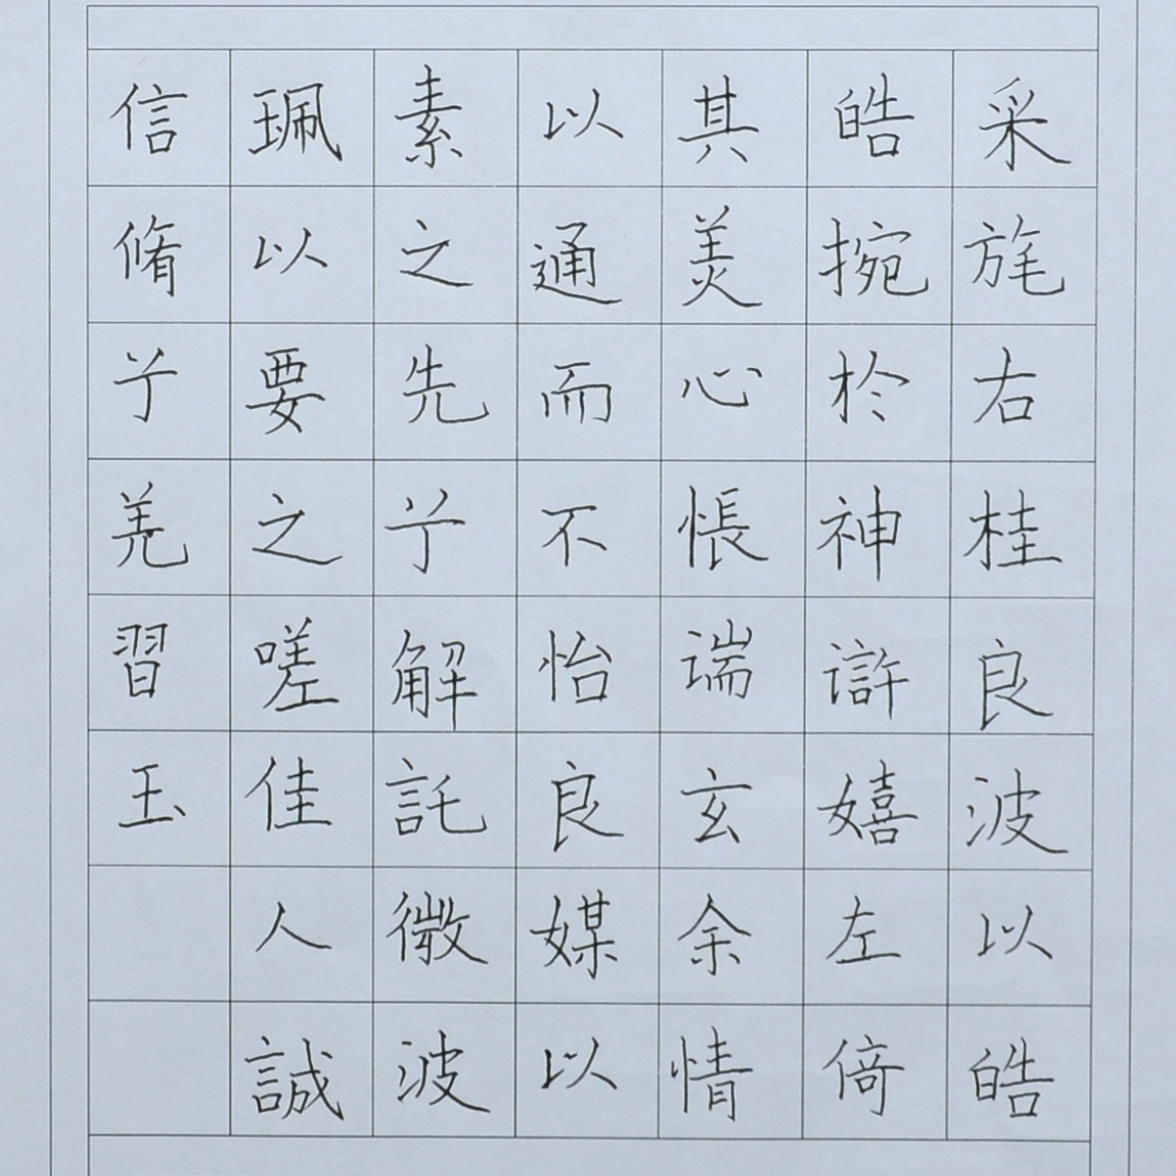 采旄右桂良波以皓
皓捥於神滸嬉左倚
其羙心悵湍玄余情
以通而不怡良媒以
素之先兮解託微波
珮以要之嗟佳人誠
信脩兮羌習玉